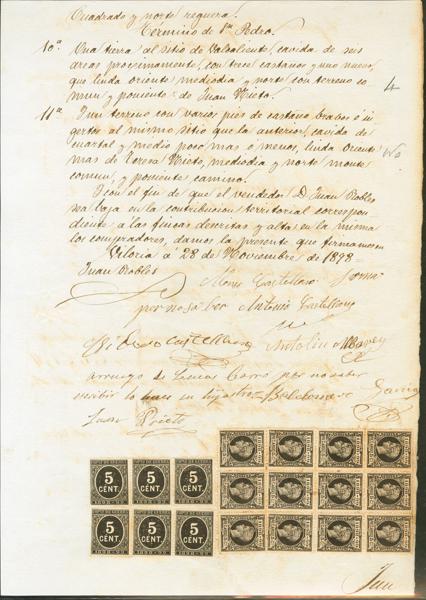 Cuadrado y norte reguera.
Termino de Sn Pedro.
10ª. Una tierra al sitio de Valsaliente, cavida de seis
areas procsimamente, con trece castaños y uno nuevo,
que linda oriente mediodia y norte, con terreno co
mun y poniente de Juan Nieto.
4
11ª Y un terreno con varios pies de castaño brabos é in
gertos al mismo sitio que la anterior, cavida de
cuartal y medio poco mas o menos, linda oriente
mas de Teresa Nieto, mediodia y norte monte
comun, y poniente camino.
Y con el fin de que el vendedor D. Juan Robles
sea baja en la contribucion territorial correspon
diente a las fincas descritas y altas en la misma
los compradores, damos la presente que firmamos en
Viloria a 28 de Noviembre de 1898
Juan Robles
Castellano
por no saber Antonio Castellano
Castellano Antolin
arruego de Lucas por no saber
escribir lo hace su hijastro
Juan Prieto
5 CENT. 5 CENT. 5 CENT.
1898-99 1898-99 1898-99
5 CENT. 5 CENT. 5 CENT.
1898-99 1898-99 1898-99